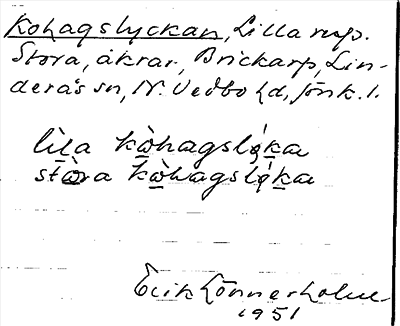 Kohagslyckan, Lilla resp.
Stora, åkrar, Brickarp, Lin-
derås sn, N. Vedbo hd, Jönk. l.
lìla kòhagsløka
stòra kòhagsløka
Erik Lönnerholm
1951